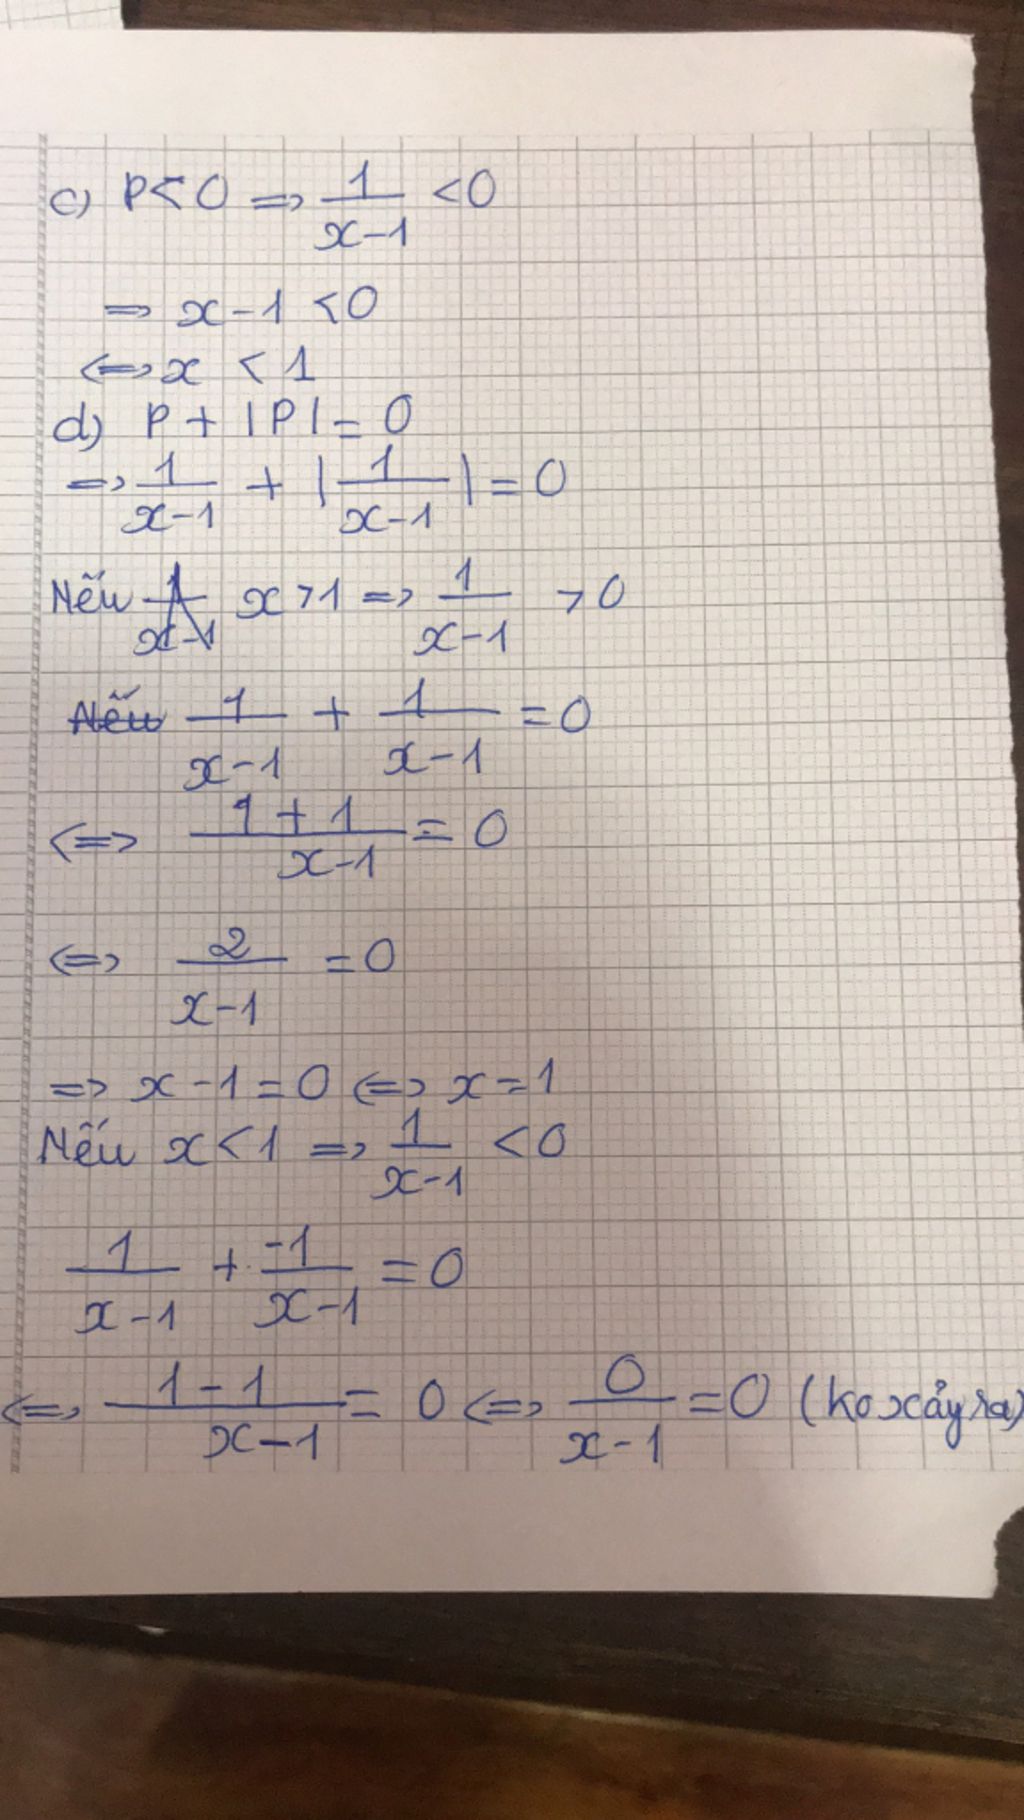 c) P < 0 => 1/(x-1) < 0
=> x - 1 < 0
<=> x < 1
d) P + |P| = 0
=> 1/(x-1) + |1/(x-1)| = 0
Nếu 1/(x-1) x > 1 => 1/(x-1) > 0
Nếu 1/(x-1) + 1/(x-1) = 0
<=> (1+1)/(x-1) = 0
<=> 2/(x-1) = 0
=> x - 1 = 0 <=> x = 1
Nếu x < 1 => 1/(x-1) < 0
1/(x-1) + -1/(x-1) = 0
<=> (1-1)/(x-1) = 0 <=> 0/(x-1) = 0 (ko xảy ra)